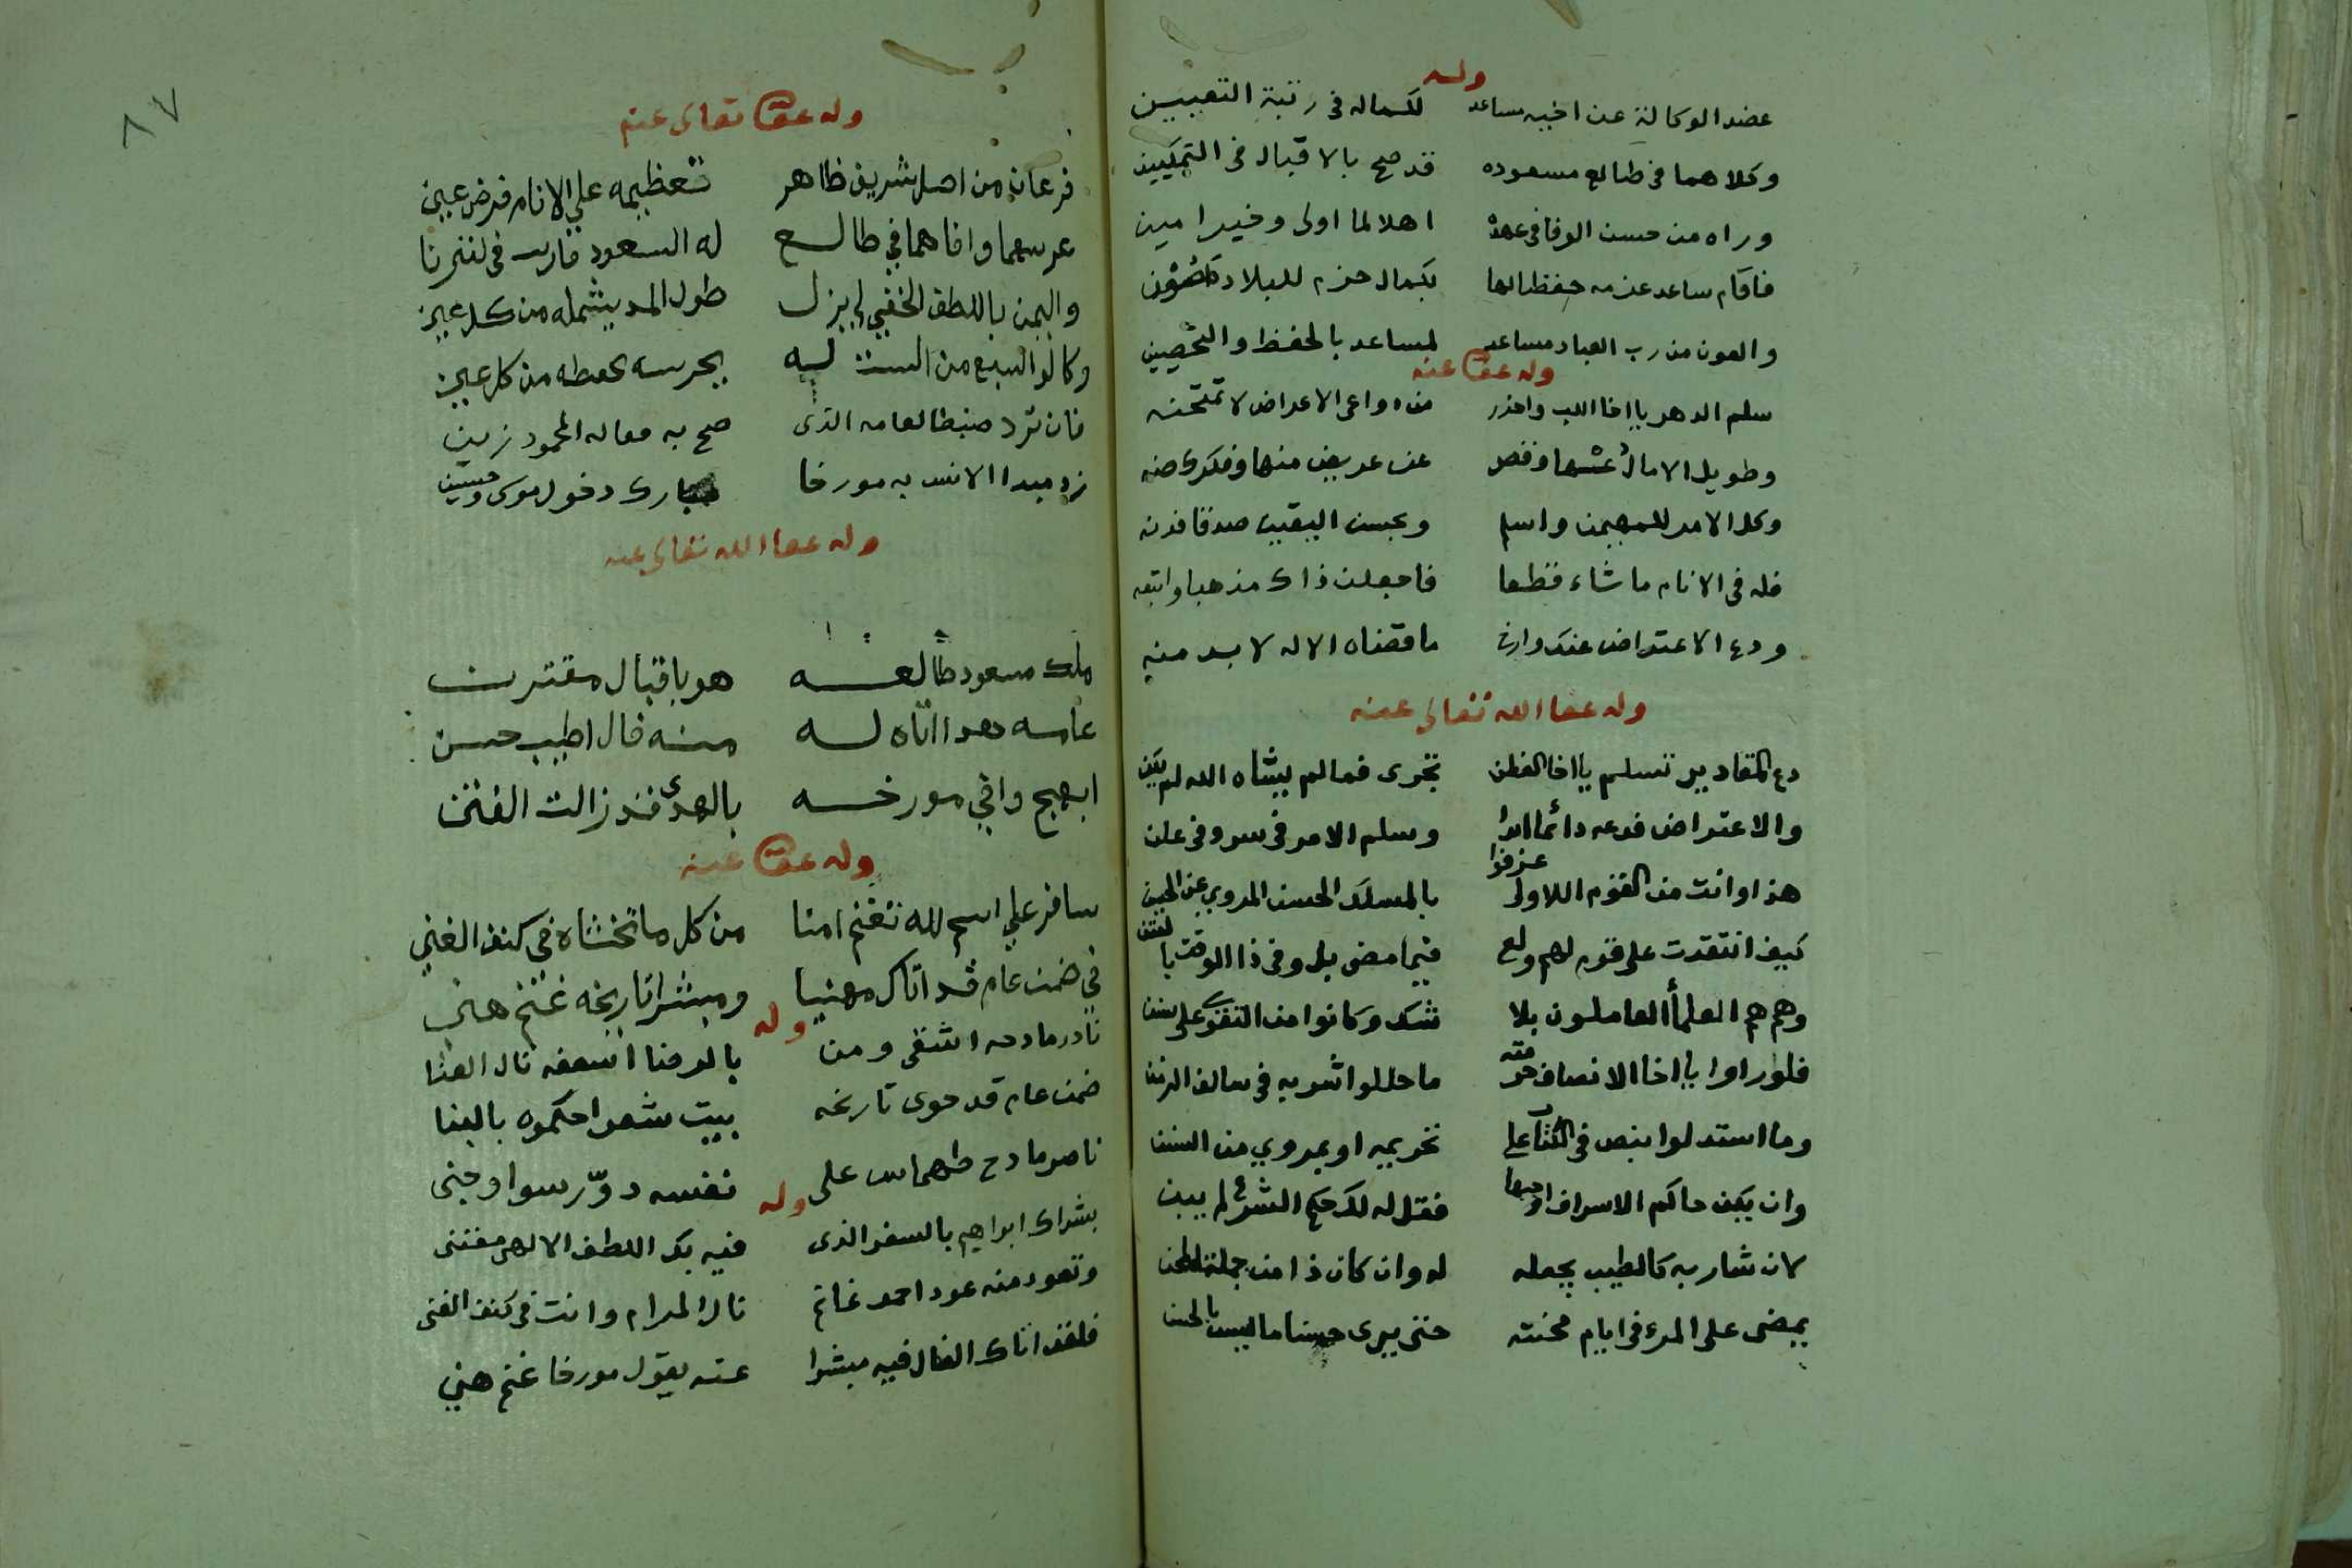 وله
عضد الوكالة عن اخيه ساعد لكماله فى رتبة التعيين
وكلاهما فى طالع مسعوده قد صح بالاقبال فى التمكين
وراه من حسن الوفا فى عهده اهلا لما اولى وخير امين
فاقام ساعد عزمه حفظا لها بكمال حزم للبلاد
والعون من رب العباد مساعد لمساعد بالحفظ والتحصين
وله عفا عنه
سلم الدهر يا اخا اللب واحذر من دواعى الاعراض لا تمتحنه
وطويل الامال عنها وقصر عن عريض منها وفكرك صنه
وكل الامر للمهيمن واسلم وبحسن اليقين صدقا فدنه
فله فى الانام ما شاء قطعا فاجعلن ذاك مذهبا واتبعه
ودع الاعتراض عنك وارض ما قضاه الاله لا بد منه
وله عفا الله تعالى عنه
دع المقادير تسلم يا اخا الفطن تجرى فما لم يشاه الله لم يكن
والاعتراض فدعه دائما ابدا وسلم الامر فى سر وفى علن
هذا وانت من القوم اللاولى عرفوا بالمسلك الحسن المروي عن
كيف انتقدت على قوم لهم ولع فيما مضى بل وفى ذا الوقت با
وهم هم العلمأ العاملون بلا شك وكانوا من التقوى على سنن
فلو راوا يا اخا الانصاف حرمته ما حللوا شربه فى سالف الزمن
وما استدلوا بنص فى الكتاب على تحريمه او بمروي من السنن
وان يكن حاكم الاسراف فقل له لك حكم الشرع لم يبن
لان شاربه كالطيب يجعله له وان كان ذا من جملة
يمضى على المرء فى ايام محنته حتى يرى حسنا ما ليس بالحسن
٨٧
وله عفا تعالى عنه
فرعان من اصل شريف ظاهر تعظيمه علي الانام فرض عين
عرسهما وافاهما في طالع له السعود قارت فى
واليمن باللطف الخفي لم يزل طول المد يشمله من كل عين
يحرسه من كل عين
فان ترد ضبطا لعامه الذى صح به مقاله المحمود زين
زد مبدا الانس به مورخا مبارك دخول موسى وحسين
وله عفا الله تعالى عنه
ملك مسعود طالعه هو باقبال مقترن
اتاه له منه فال اطيب حسن
ابهج وافي مورخه بالهدى قد زالت الفتن
وله عفا عنه
سافر علي اسم لله تغنم امنا من كل ما تخشاه فى كنف الغني
في ضمن عام قد اتاك مهنيا ومبشرا تاريخه غنم هني
وله
نادر مادحه اشقى ومن بالرضا اسعفه نال العنا
ضمن عام قد حوى تاريخه بيت شعر احكموه بالبنا
ناصر مادح طهماس على نفسه دوّر سوا وجنى
وله
بشراك ابراهيم بالسفر الذى فيه بك اللطف الالهى مقتنى
وتعود منه عود احمد غانم نال المرام وانت فى كنف الغنى
فلقد اتاك الفال فيه مبشرا عنه يقول مورخا غنم هني